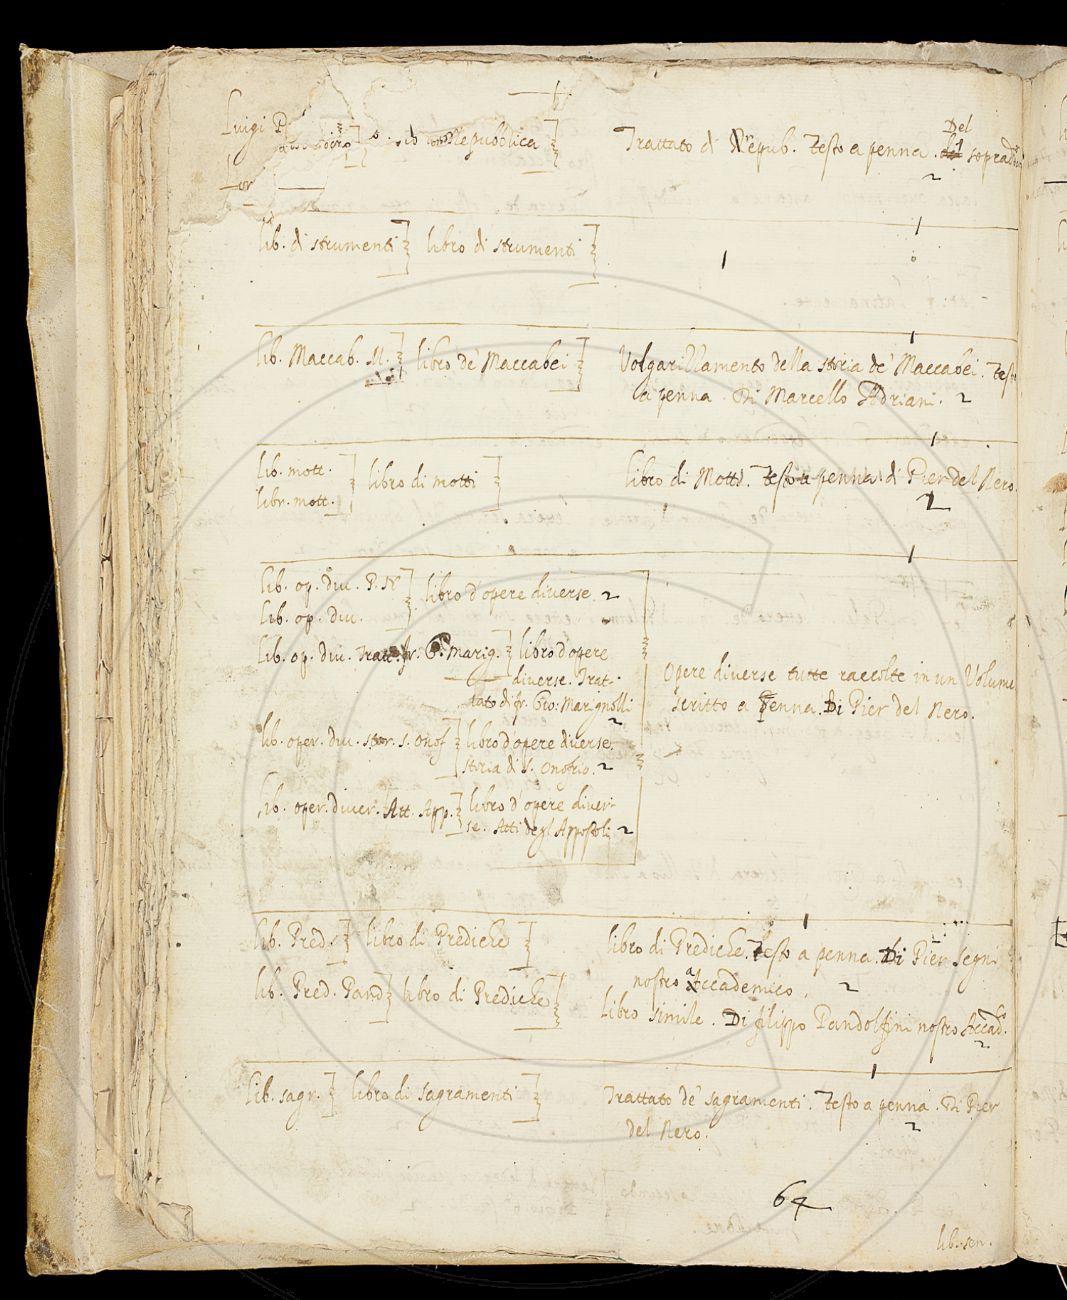 Luigi P
Repubblica
Trattato di Repub. Testo a penna. Del soprad.
lib. di strumenti
libro di strumenti
lib. Maccab. M.
libro de' Maccabei
Volgarizzamento della storia de' Maccabei. Testo
a penna. Di Marcello Adriani.
lib. mott.
libr. mott.
libro di motti
libro di Motti. Testo a penna di Pier del Nero.
lib. op. diu. P. N
lib. op. diu.
libro d'opere diuerse.
lib. op. diu. Tratt. fr. G. Marig.
libro d'opere
diuerse. Trat-
tato di fr. Gio: Marignolli
lib. oper. diu. stor. S. Onof
libro d'opere diuerse.
storia di S. Onofrio.
lib. oper. diuer. Att. App.
libro d'opere diuer-
se. Atti degl'Appostoli
Opere diuerse tutte raccolte in un Volume
scritto a penna. Di Pier del Nero.
lib. Pred.
libro di Prediche
libro di Prediche. Testo a penna. Di Pier Segni
nostro Accademico.
lib. Pred. Pand
libro di Prediche
libro simile. Di filippo Pandolfini nostro Accad.
lib. sagr.
libro di sagramenti
Trattato de' sagramenti. Testo a penna. Di Pier
del Nero.
64
lib. sen.